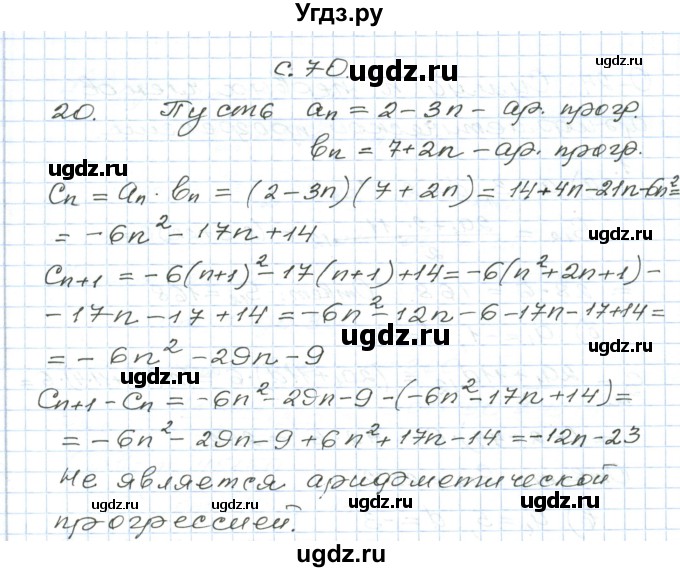 Угдз.ру
с. 70
ugdz.ru
20. Пусть aₙ = 2 - 3n - ар. прогр.
ugdz.ru
bₙ = 7 + 2n - ар. прогр.
ugdz.ru
Cₙ = aₙ · bₙ = (2 - 3n)(7 + 2n) = 14 + 4n - 21n - 6n² =
= -6n² - 17n + 14
ugdz.ru
Cₙ₊₁ = -6(n+1)² - 17(n+1) + 14 = -6(n² + 2n + 1) -
- 17n - 17 + 14 = -6n² - 12n - 6 - 17n - 17 + 14 =
ugdz.ru
= -6n² - 29n - 9
ugdz.ru
ugdz.ru
Cₙ₊₁ - Cₙ = -6n² - 29n - 9 - (-6n² - 17n + 14) =
= -6n² - 29n - 9 + 6n² + 17n - 14 = -12n - 23
Не является арифметической
ugdz.ru ugdz.ru ugdz.ru
прогрессией.
ugdz.ru